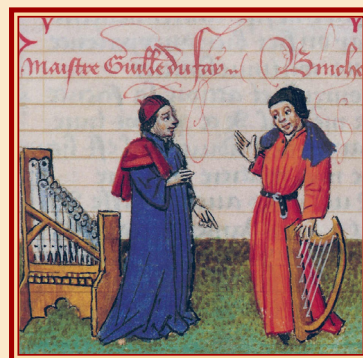 Maistre Guille du fay Binche